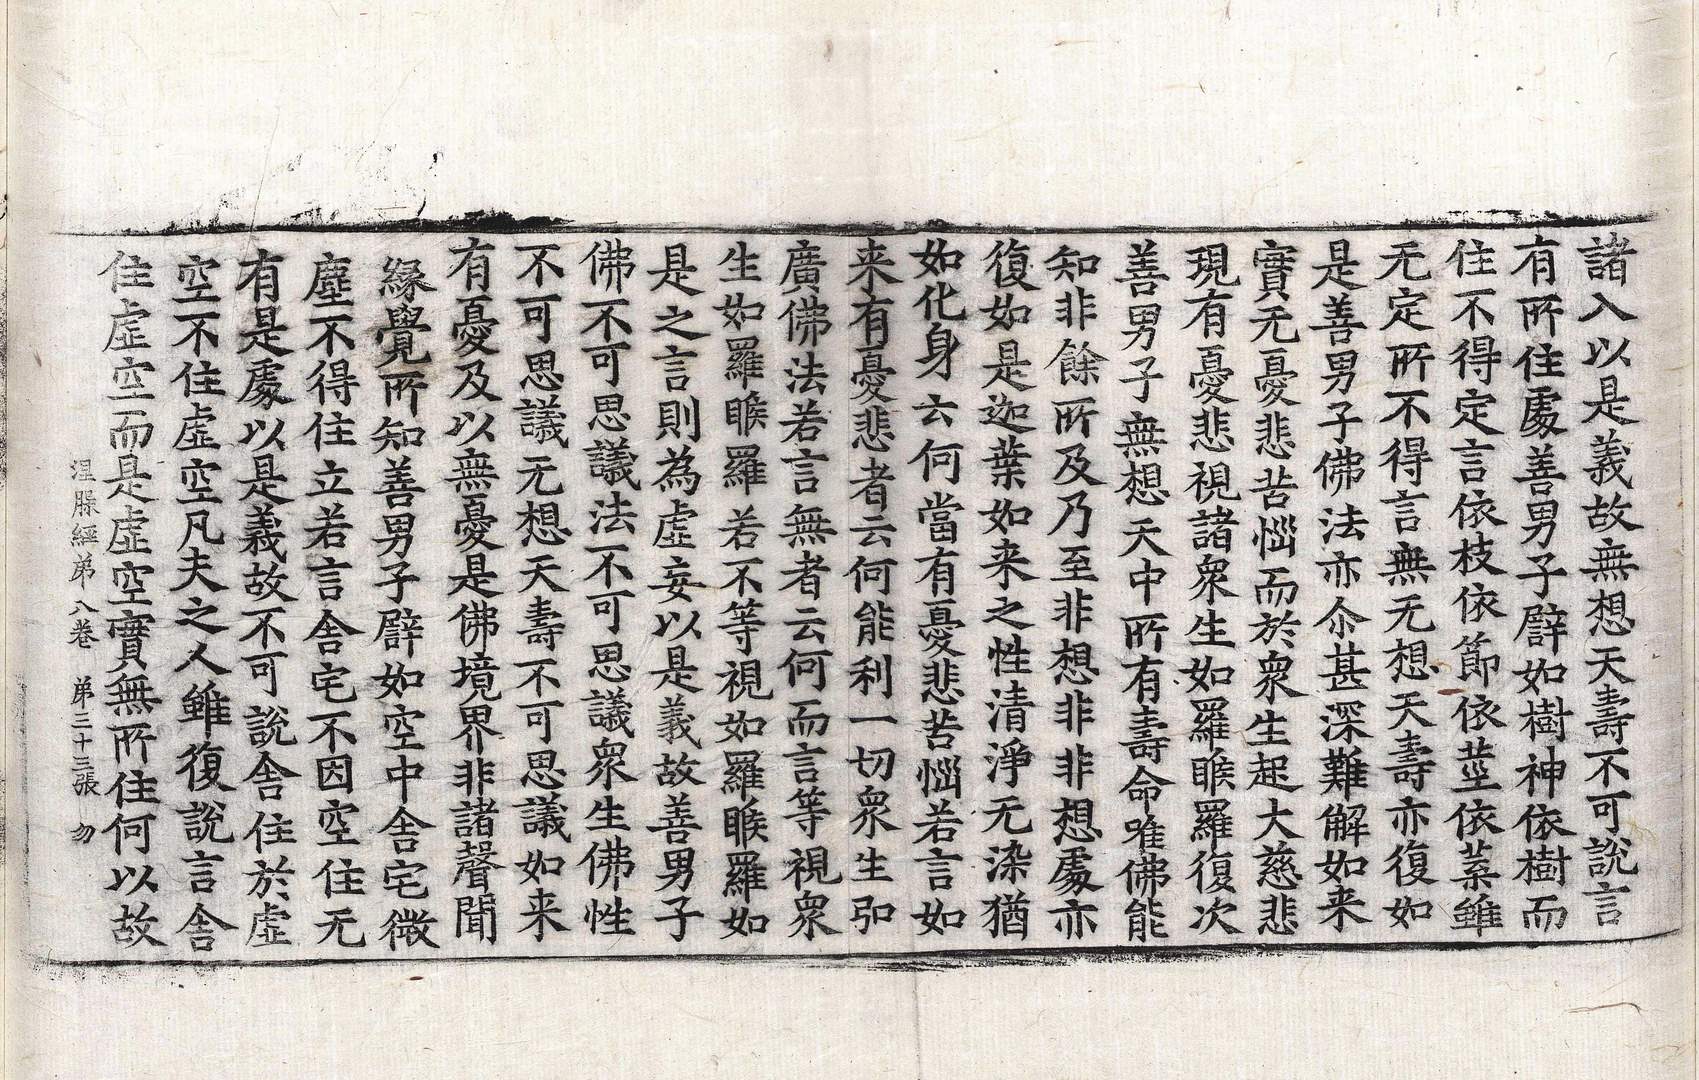 諸入以是義故無想天壽不可說言
有所住處善男子譬如樹神依樹而
住不得定言依枝依節依莖依葉雖
无定所不得言無无想天壽亦復如
是善男子佛法亦尒甚深難解如来
實无憂悲苦惱而於衆生起大慈悲
現有憂悲視諸衆生如羅睺羅復次
善男子無想天中所有壽命唯佛能
知非餘所及乃至非想非非想處亦
復如是迦葉如来之性清淨无染猶
如化身云何當有憂悲苦惱若言如
来有憂悲者云何能利一切衆生弘
廣佛法若言無者云何而言等視衆
生如羅睺羅若不等視如羅睺羅如
是之言則為虛妄以是義故善男子
佛不可思議法不可思議衆生佛性
不可思議无想天壽不可思議如来
有憂及以無憂是佛境界非諸聲聞
緣覺所知善男子譬如空中舍宅微
塵不得住立若言舍宅不因空住无
有是處以是義故不可說舍住於虛
空不住虛空凡夫之人雖復說言舍
住虛空而是虛空實無所住何以故
涅脲經弟八卷 弟三十三張 勿